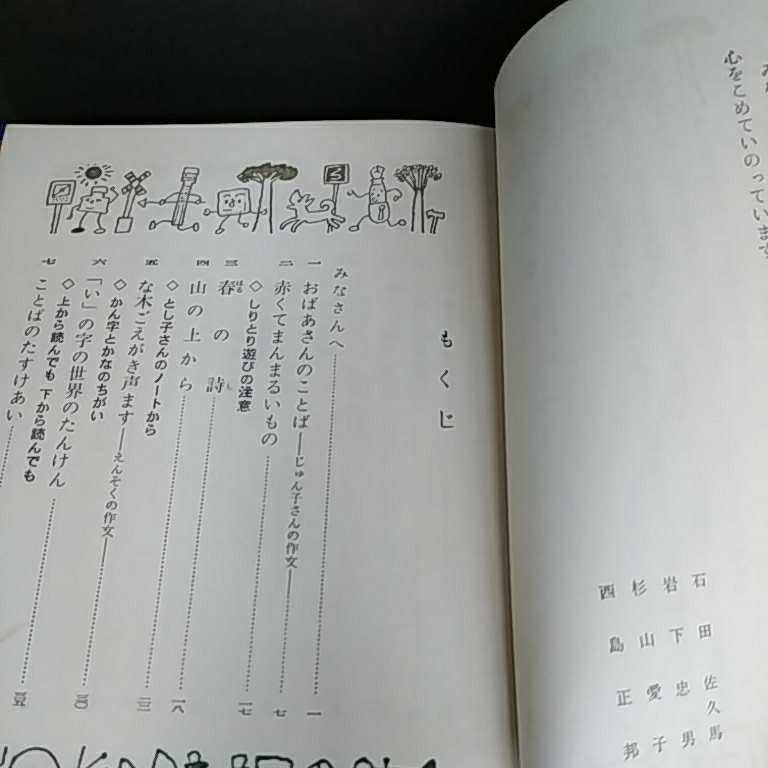 心をこめていのっています
石田佐久馬
岩下忠男
杉山愛子
西島正邦
もくじ
みなさんへ……一
一 おばあさんのことば——じゅん子さんの作文——……七
二 赤くてまんまるいもの……一七
◇しりとり遊びの注意
三 春の詩……一八
四 山の上から……二三
◇とし子さんのノートから
五 な木ごえがき声ます——えんそくの作文——……三〇
◇かん字とかなのちがい
六 「い」の字の世界のたんけん……三五
◇上から読んでも 下から読んでも
七 ことばのたすけあい……